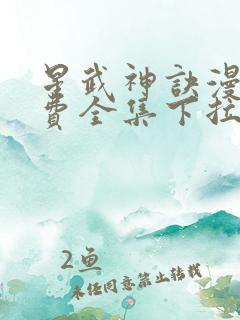 星武神訣漫
費全集下拉
2鱼
未经同意禁止转载